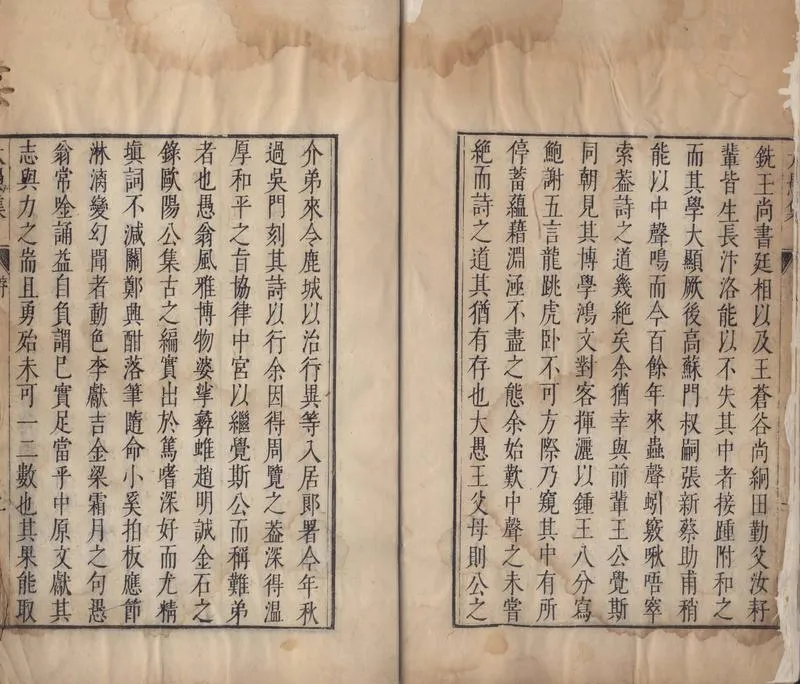 銑王尚書廷相以及王蒼谷尚絅田勤父汝耔
輩皆生長汴洛能以不失其中者接踵附和之
而其學大顯厥後高蘇門叔嗣張新蔡助甫稍
能以中聲鳴而今百餘年來蟲聲蚓竅啾唔宰
索葢詩之道幾絶矣余猶幸與前輩王公覺斯
同朝見其博學鴻文對客揮灑以鍾王八分寫
鮑謝五言龍跳虎卧不可方際乃窺其中有所
停蓄蘊藉淵涵不盡之態余始歎中聲之未嘗
絶而詩之道其猶有存也大愚王父母則公之
介弟來令鹿城以治行異等入居郎署今年秋
過吳門刻其詩以行余因得周覽之葢深得温
厚和平之旨協律中宮以繼覺斯公而稱難弟
者也愚翁風雅博物婆挲彝蜼趙明誠金石之
錄歐陽公集古之編實出於篤嗜深好而尤精
塡詞不減關鄭興酣落筆隨命小奚拍板應節
淋漓變幻聞者動色李獻吉金梁霜月之句愚
翁常唫誦益自負謂已實足當乎中原文獻其
志與力之耑且勇殆未可一二數也其果能取